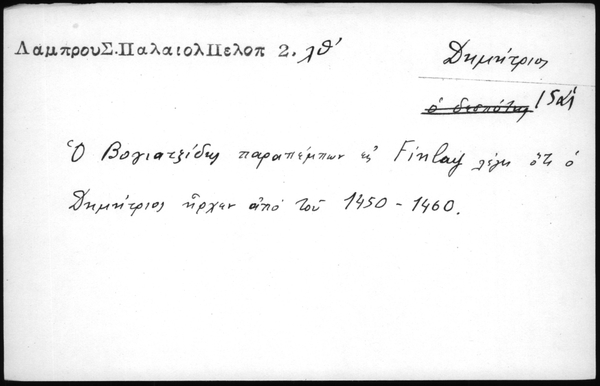 ΛαμπρουΣ.ΠαλαιολΠελοπ 2. λθ'
Δημήτριος
ὁ δεσπότης
Ὁ Βογιατζίδης παραπέμπων εἰς Finlay λέγει ὅτι ὁ
Δημήτριος ἦρχεν ἀπό τοῦ 1450 - 1460.